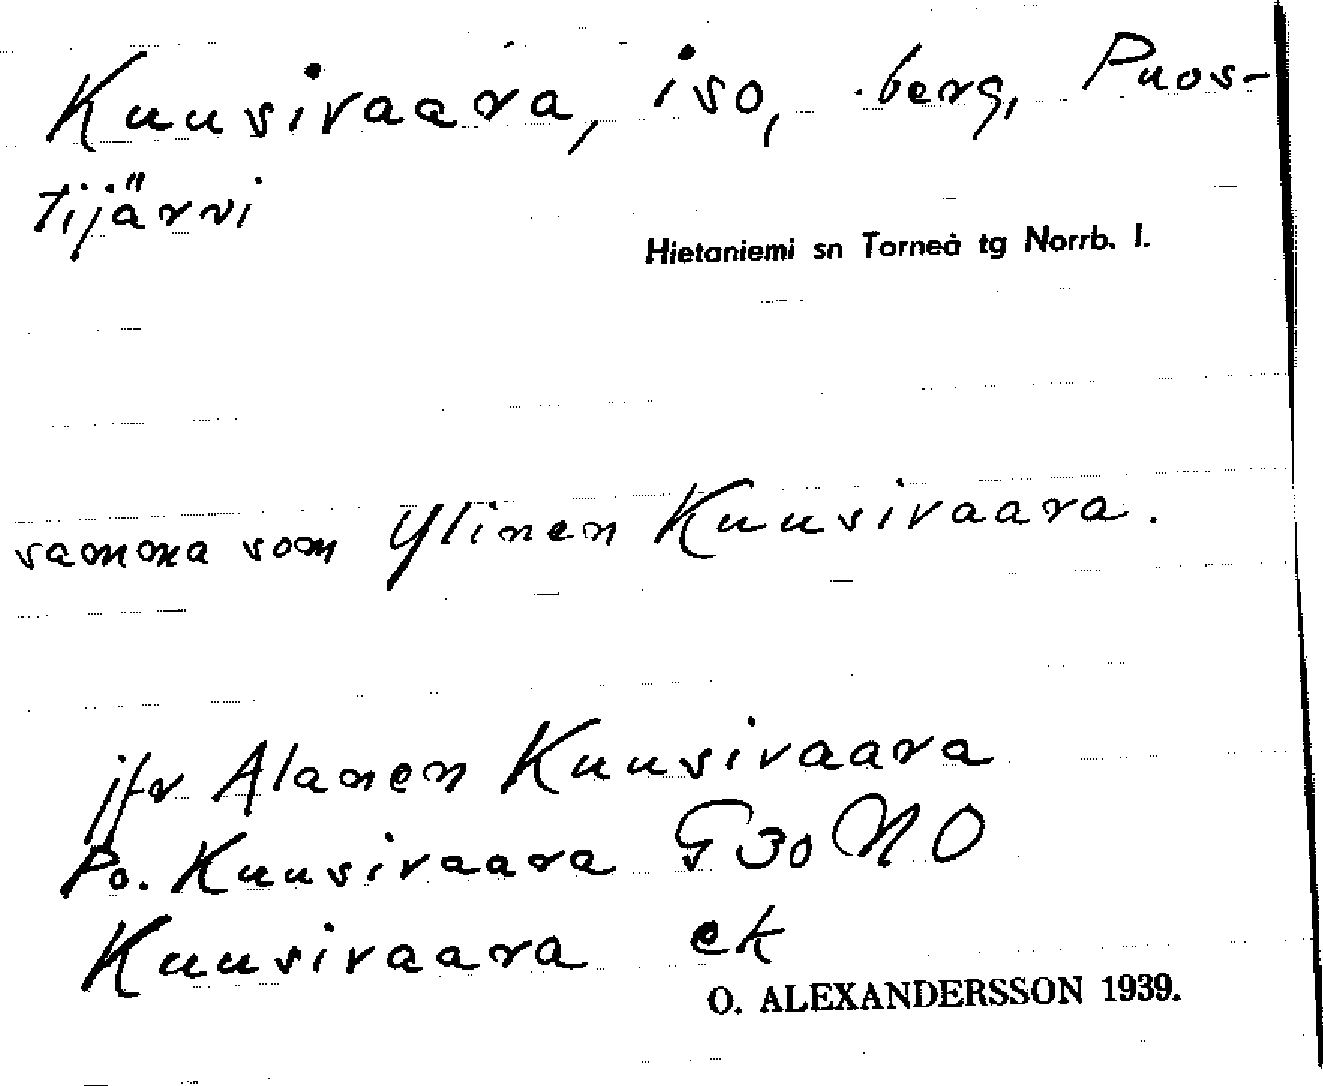 Kuusivaara, iso, berg, Puos-
tijärvi
Hietaniemi sn Torneå tg Norrb. l.
samma som Ylinen Kuusivaara.
jfr Alanen Kuusivaara
Po. Kuusivaara G 30 NO
Kuusivaara ek
O. ALEXANDERSSON 1939.